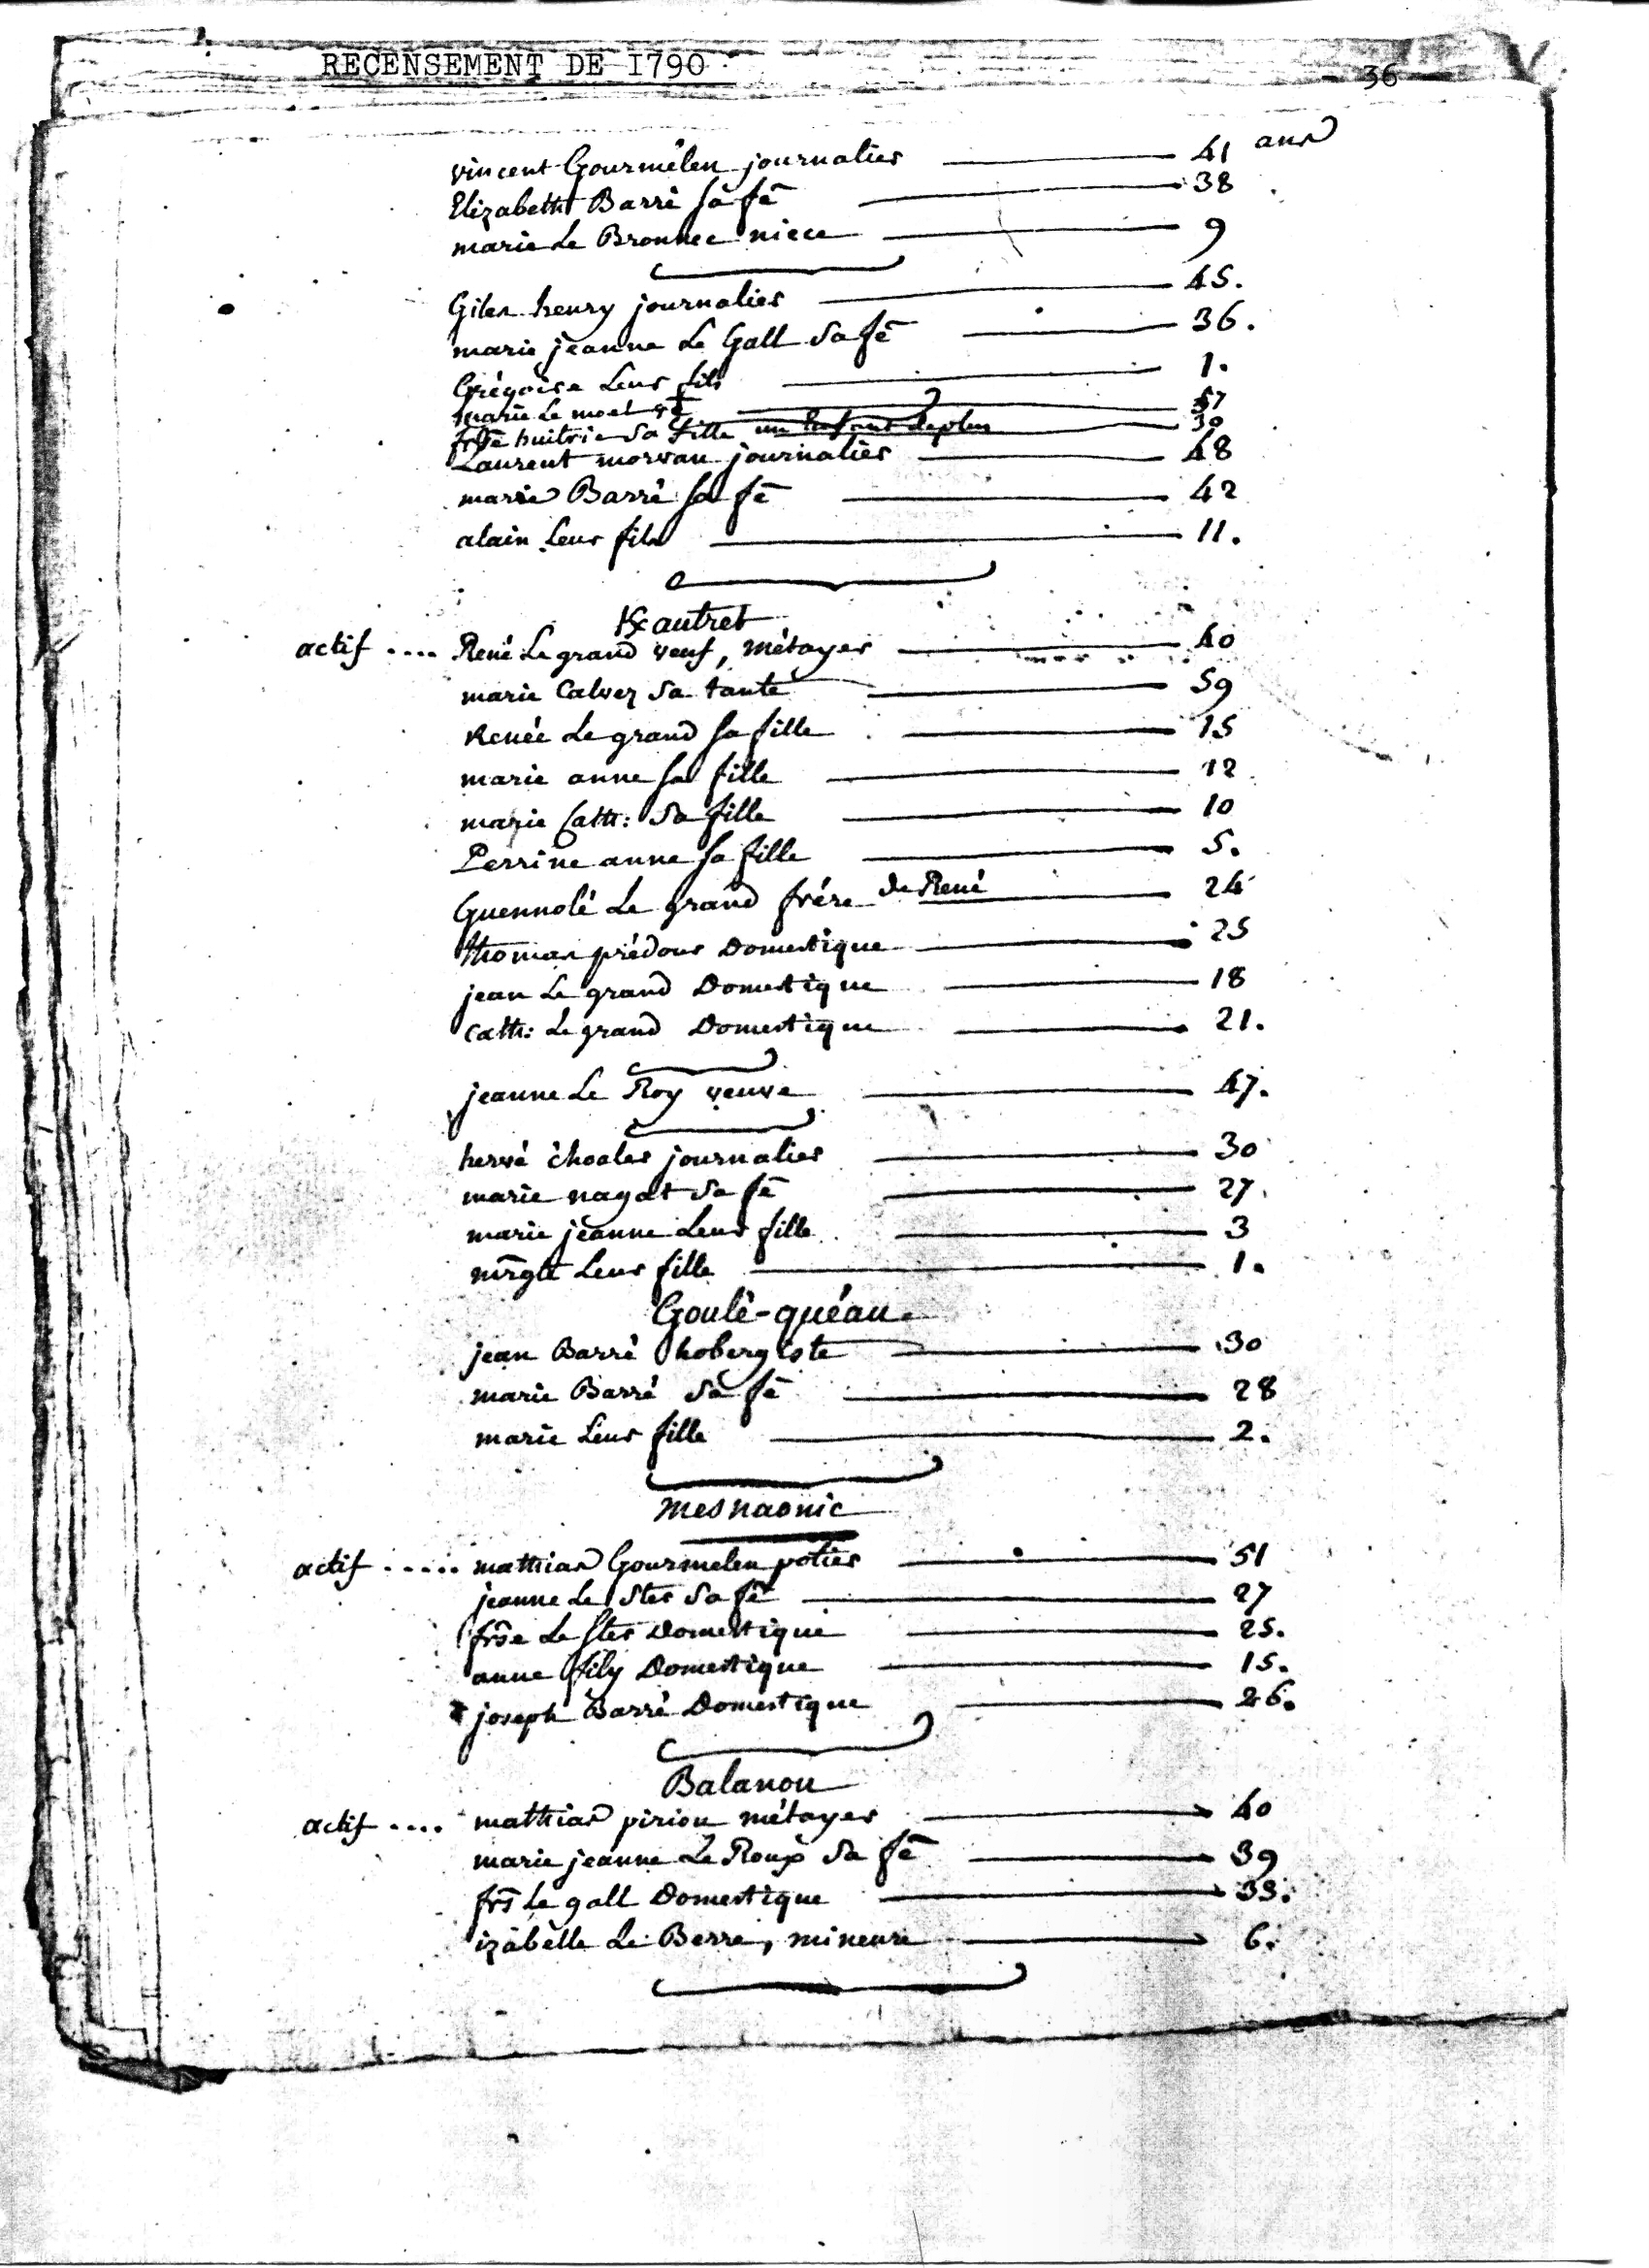 RECENSEMENT DE I790
- 36 -
vincent Gourmélen journalier 41 ans
Elizabeth Barré sa fē 38
marie Le Bronnec niece 9
Giles henry journalier 45.
marie jeanne Le Gall sa fē 36.
Grégoire Leur fils 1.
marie Le moel vē 57
frse huitric sa fille un Enfant deplus 30
Laurent morvan journalier 48
marie Barré sa fē 42
alain Leur fils 11.
K autret
actif .... René Le grand veuf, métayer 40
marie Calvez sa tante 59
Renée Le grand sa fille 15
marie anne sa fille 12
marie Cath: sa fille 10
Perrine anne sa fille 5.
Guennolé Le grand frére de René 24
thomas prédour Domestique 25
jean Le grand Domestique 18
Cath: Le grand Domestique 21.
jeanne Le Roy veuve 47.
hervé choaler journalier 30
marie nagat sa fē 27.
marie jeanne Leur fille 3
mrgte Leur fille 1.
Goulé-quéau
jean Barré hobergiste 30
marie Barré sa fē 28
marie Leur fille 2.
mesnaonic
actif ..... mathias Gourmelen potier 51
jeanne Le Ster sa fē 27
frse Le Ster Domestique 25.
anne fily Domestique 15.
joseph Barré Domestique 26.
Balanou
actif .... mathias piriou métayer 40
marie jeanne Le Roux sa fē 39
frs Le gall Domestique 39.
izabelle Le Berre, mineure 6.